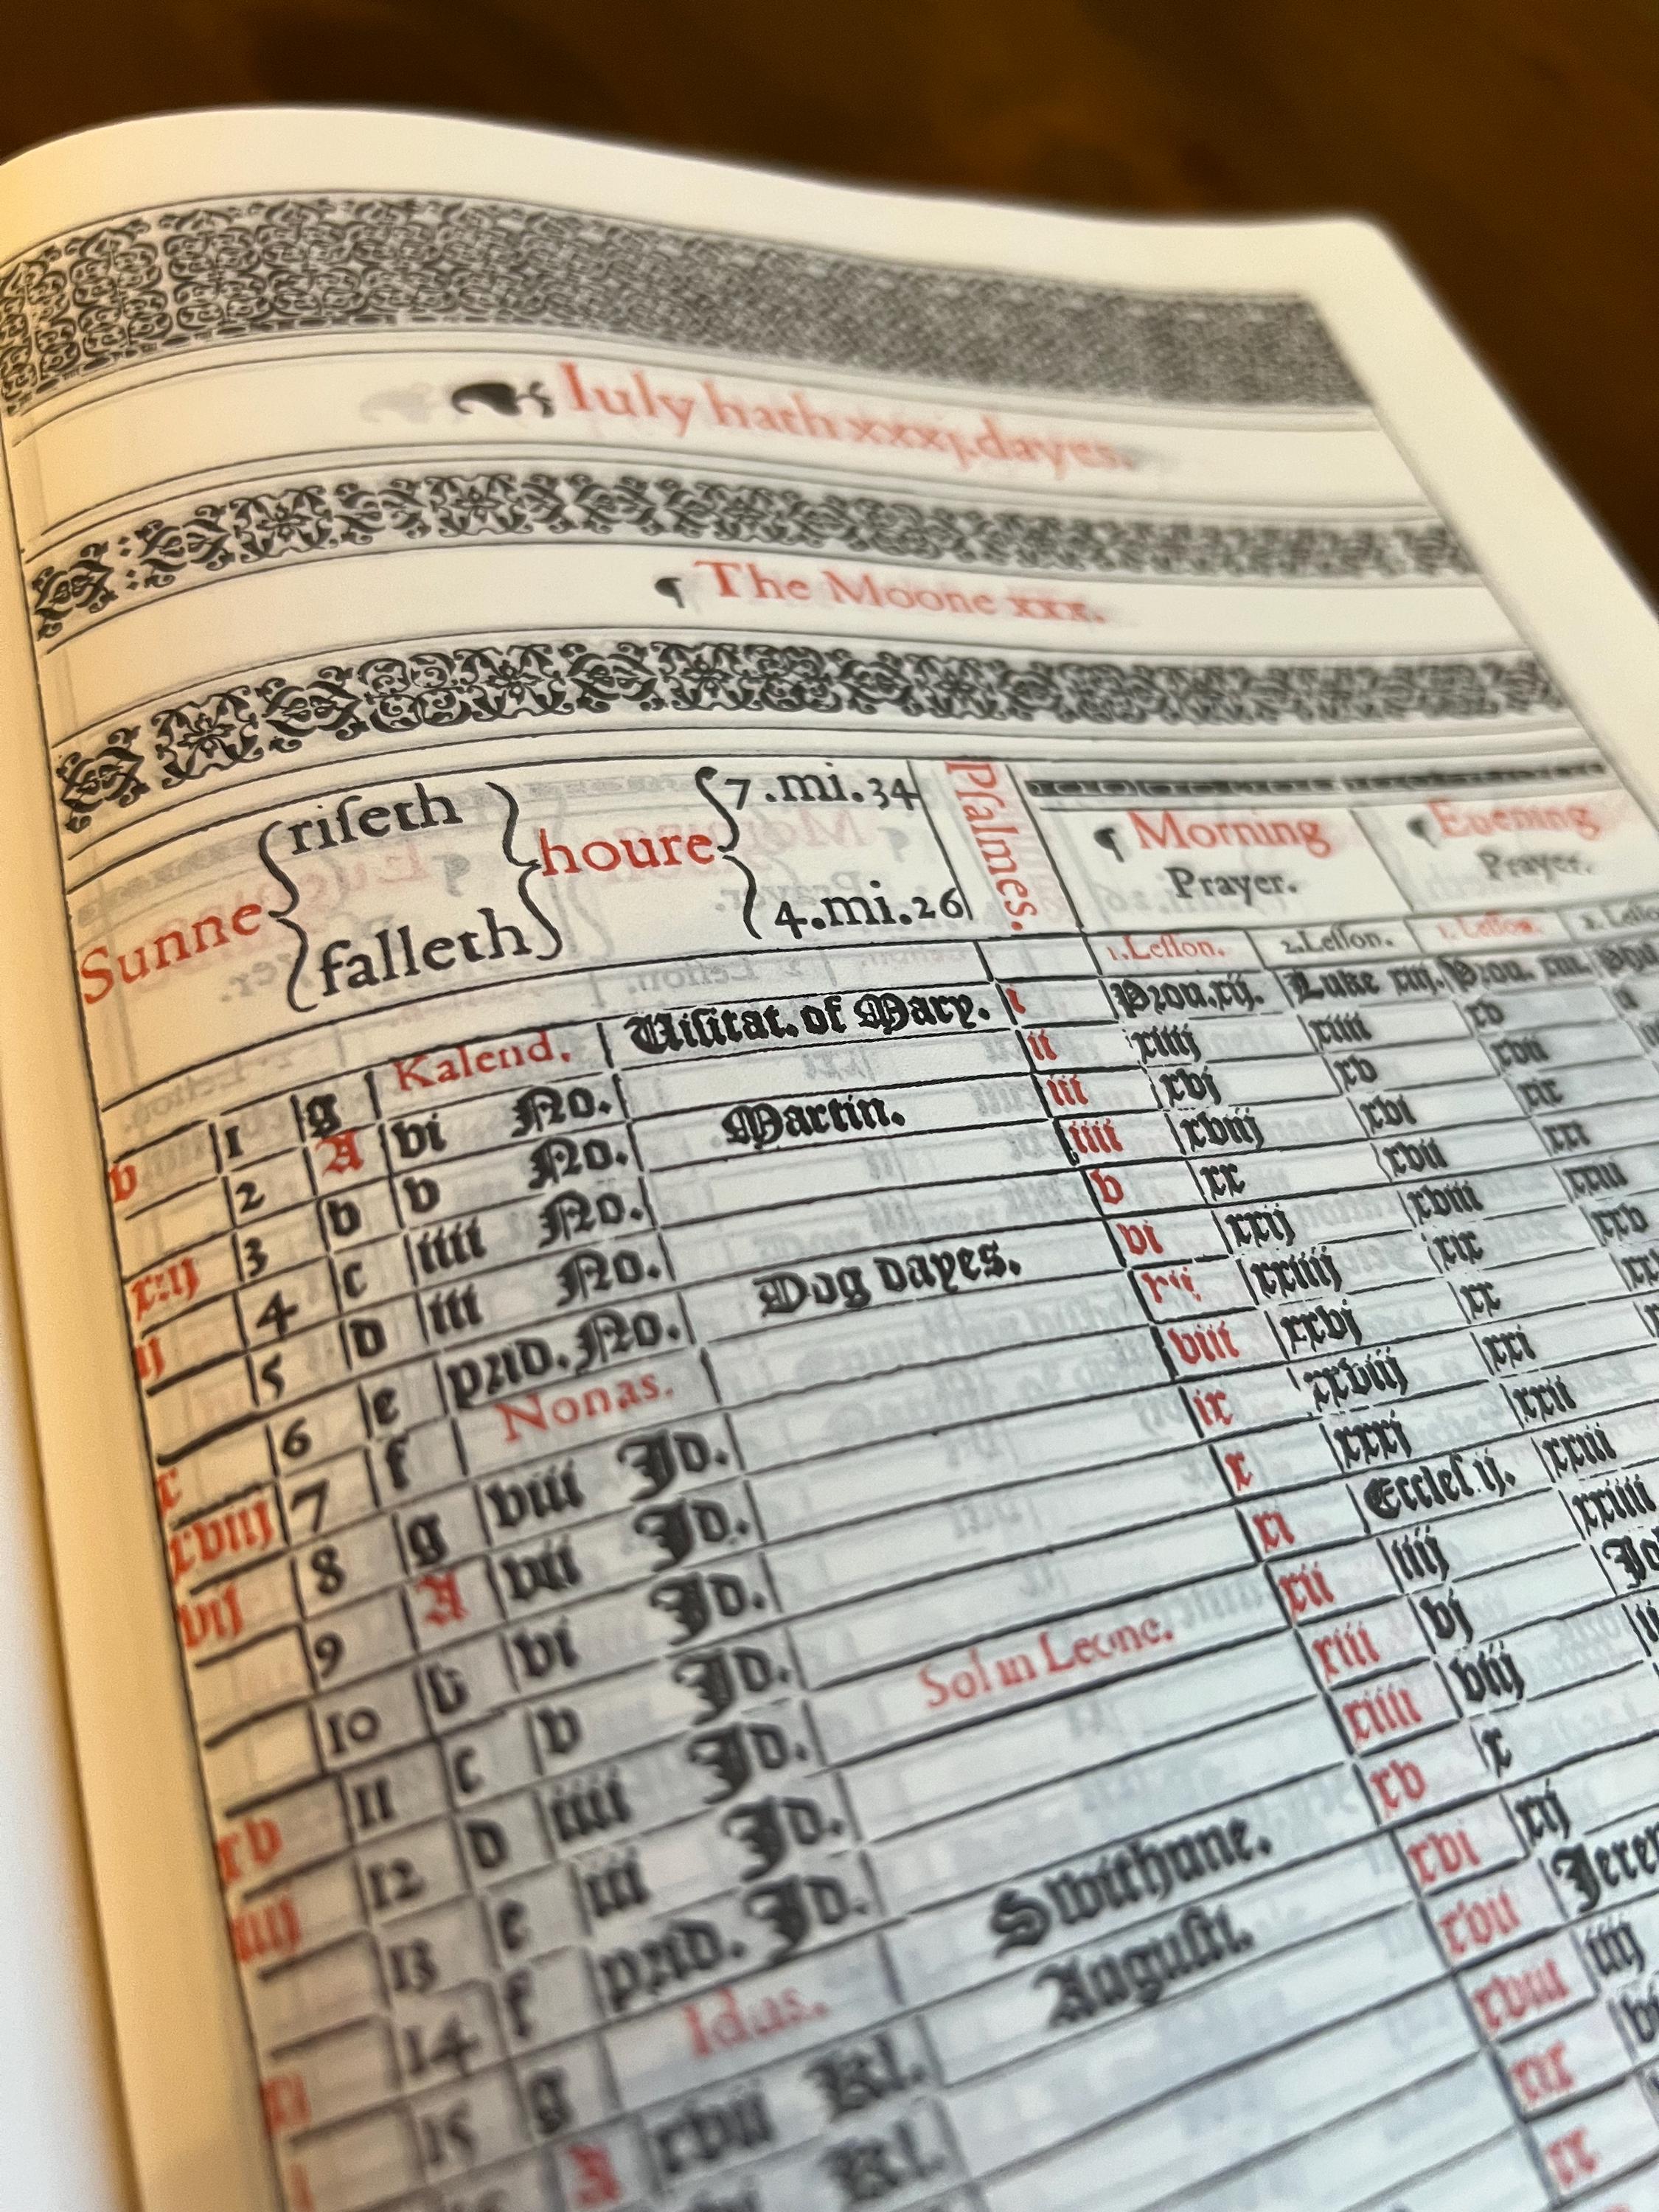 Iuly hath xxxj.dayes.
¶ The Moone xxx.
Sunne riſeth falleth houre 7.mi.34 4.mi.26
Pſalmes.
¶ Morning Prayer.
¶ Euening Prayer.
1.Leſſon. 2.Leſſon. 1.Leſſon. 2.Leſſo
v 1 g Kalend. Uiſitat. of Mary. i Prou.xij. Luke xiij. Prou. xiij.
2 A vi No. ii xiiij xiiii xv
3 b v No. Martin. iii xvj xv xvii
ij 4 c iiii No. iiii xviij xvi xix
5 d iii No. v xx xvii xxi
x 6 e prid. No. Dog dayes. vi xxij xviii xxiii
xviij 7 f Nonas. vii xxiiij xix xxv
vij 8 g viii Id. viii xxvj xx
9 A vii Id. ix xxviij xxi
10 b vi Id. x xxxj xxii
xv 11 c v Id. xi Eccleſ.ij. xxiii
iiij 12 d iiii Id. Sol in Leone. xii iiij xxiiii
13 e iii Id. xiii vj
14 f prid. Id. xiiii viij
15 g Idus. Swithune. xv x
A xvii Kl. Auguſti. xvi xij
Kl. xvii
xviii iiij
xix
xx